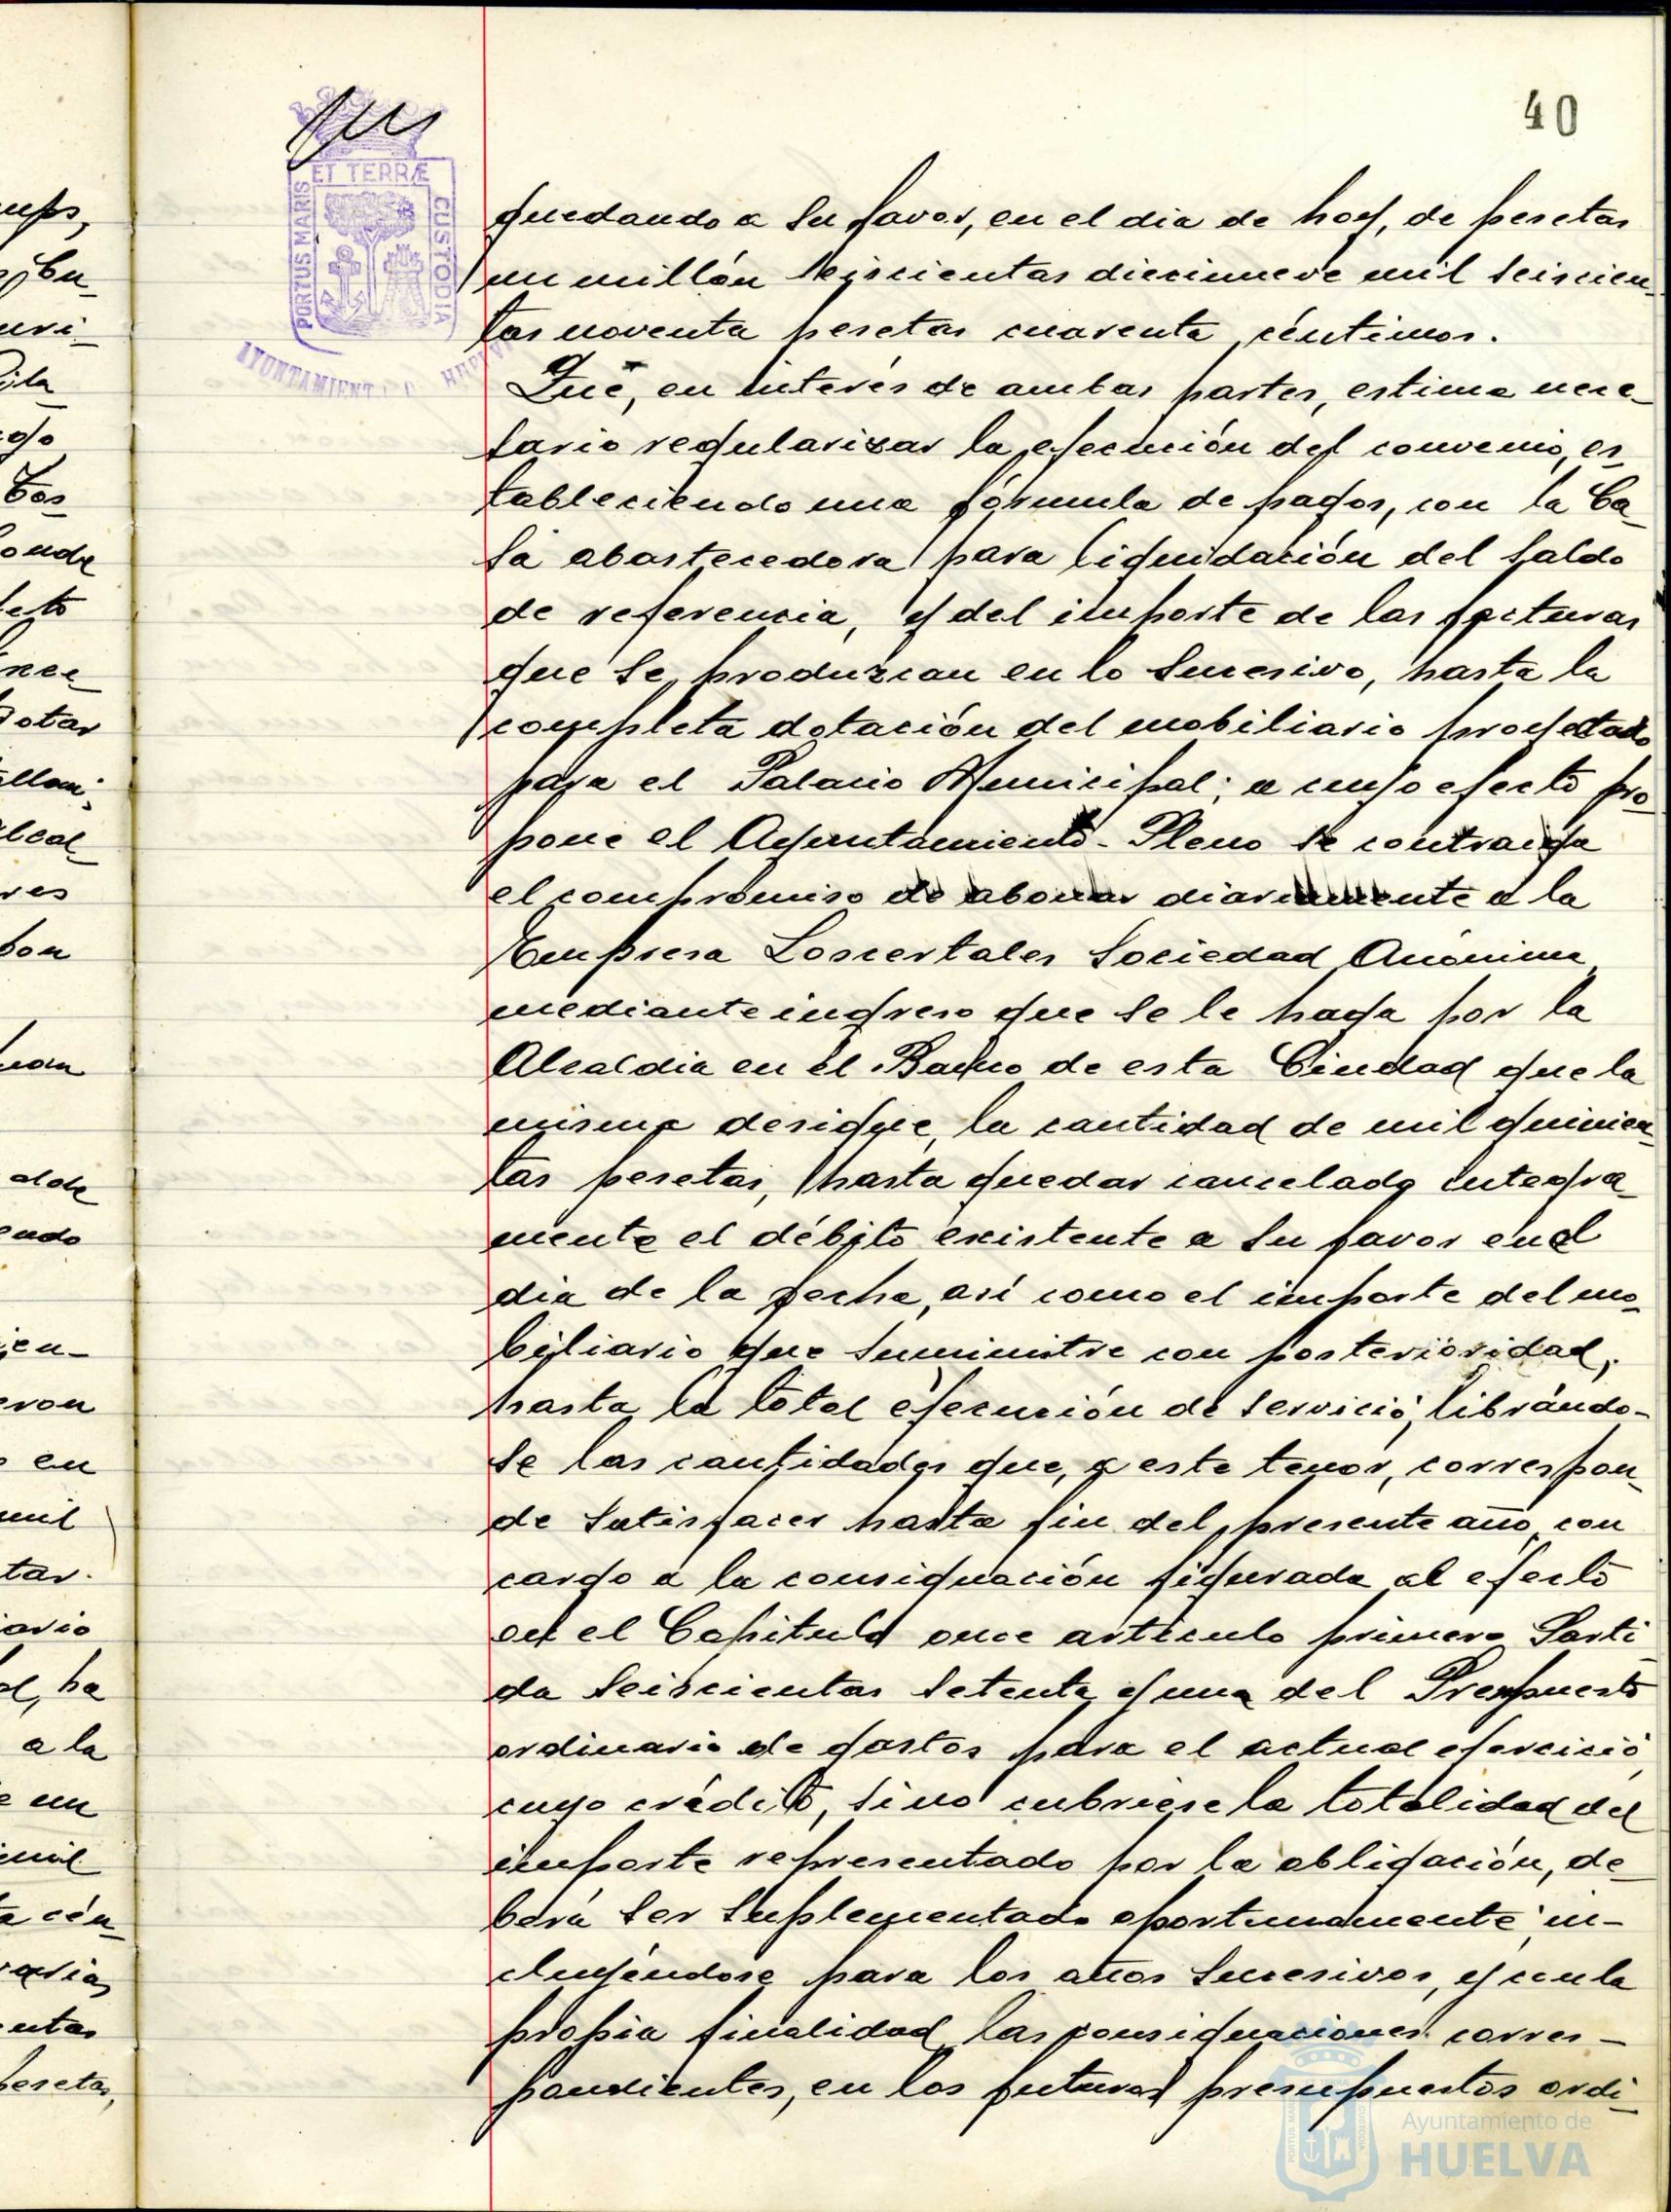 40
PORTUS MARIS ET TERRÆ CUSTODIA
AYUNTAMIENTO
quedando a su favor, en el dia de hoy, de pesetas
un millón seiscientas diecinueve mil seiscien-
tas noventa pesetas cuarenta céntimos.
Que, en interés de ambas partes, estima nece-
sario regularizar la ejecución del convenio, es-
tableciendo una fórmula de pagos, con la Ca-
sa abastecedora para liquidación del saldo
de referencia, y del importe de las facturas
que se produzcan en lo sucesivo, hasta la
completa dotación del mobiliario proyectado
para el Palacio Municipal; a cuyo efecto pro-
pone el Ayuntamiento-Pleno se contraiga
el compromiso de abonar diariamente a la
Empresa Loscertales Sociedad Anónima,
mediante ingreso que se le haga por la
Alcaldia en el Banco de esta Ciudad que la
misma designe, la cantidad de mil quinien-
tas pesetas, hasta quedar cancelado integra-
mente el débito existente a su favor en el
dia de la fecha, así como el importe del mo-
biliario que suministre con posterioridad,
hasta la total ejecución de servicio, librándo-
se las cantidades que, a este tenor, correspon-
de satisfacer hasta fin del presente año, con
cargo a la consignación figurada al efecto
en el Capitulo once articulo primero Parti-
da seiscientas setenta y una del Presupuesto
ordinario de gastos para el actual ejercicio,
cuyo crédito, si no cubriese la totalidad del
importe representado por la obligación, de-
berá ser suplementado oportunamente, in-
cluyéndose para los años sucesivos, y con la
propia finalidad las consignaciones corres-
pondientes, en los futuros presupuestos ordi-
Ayuntamiento de
HUELVA